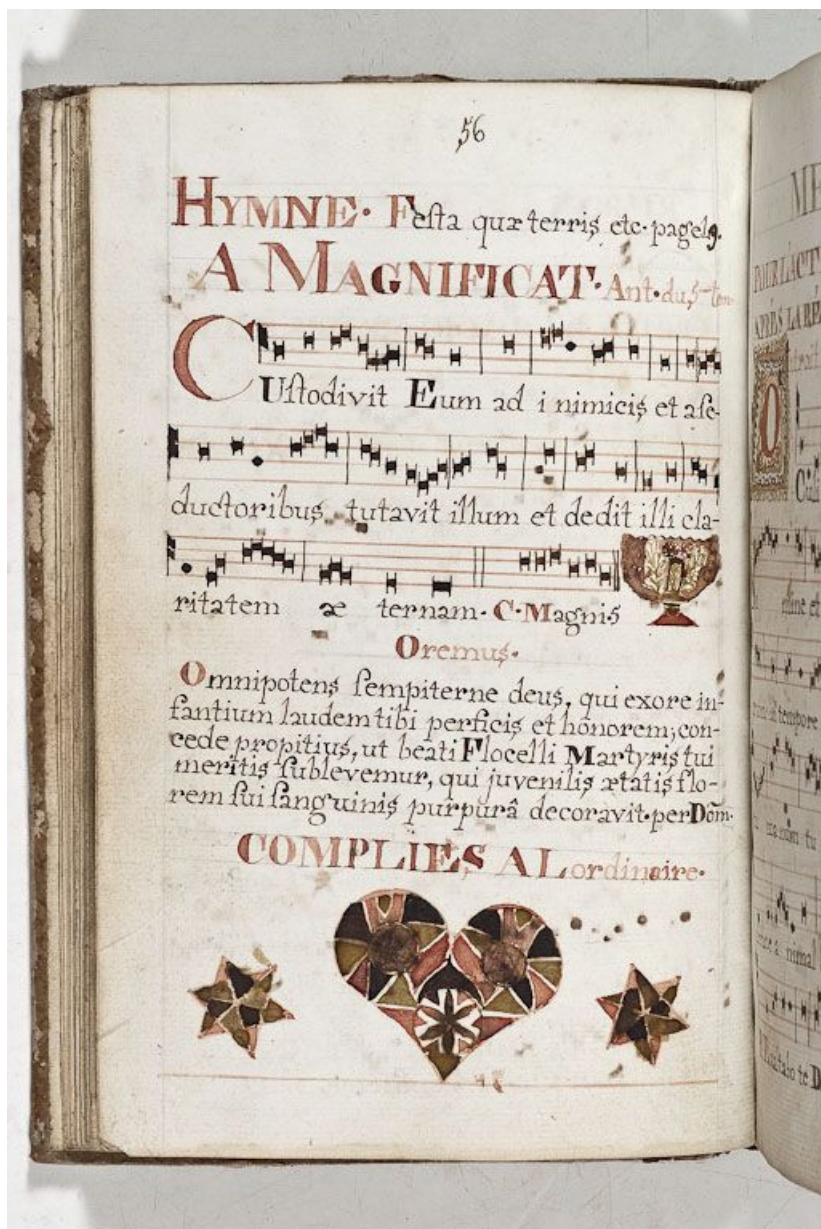 56
HYMNE. Festa quæ terris etc. page
A MAGNIFICAT. Ant. du
CUstodivit Eum ad i nimicis et a se-
ductoribus tutavit illum et dedit illi cla-
ritatem æ ternam. C. Magnis
Oremus.
Omnipotens sempiterne deus, qui exore in-
fantium laudem tibi perficis et honorem; con-
cede propitius, ut beati Flocelli Martyris tui
meritis sublevemur, qui juvenilis ætatis flo-
rem sui sanguinis purpurâ decoravit. per Dom̄.
COMPLIES A L ordinaire.
ME
POUR L'ACT
APRÈS LA RÉ
O
tempore
nimal
te D